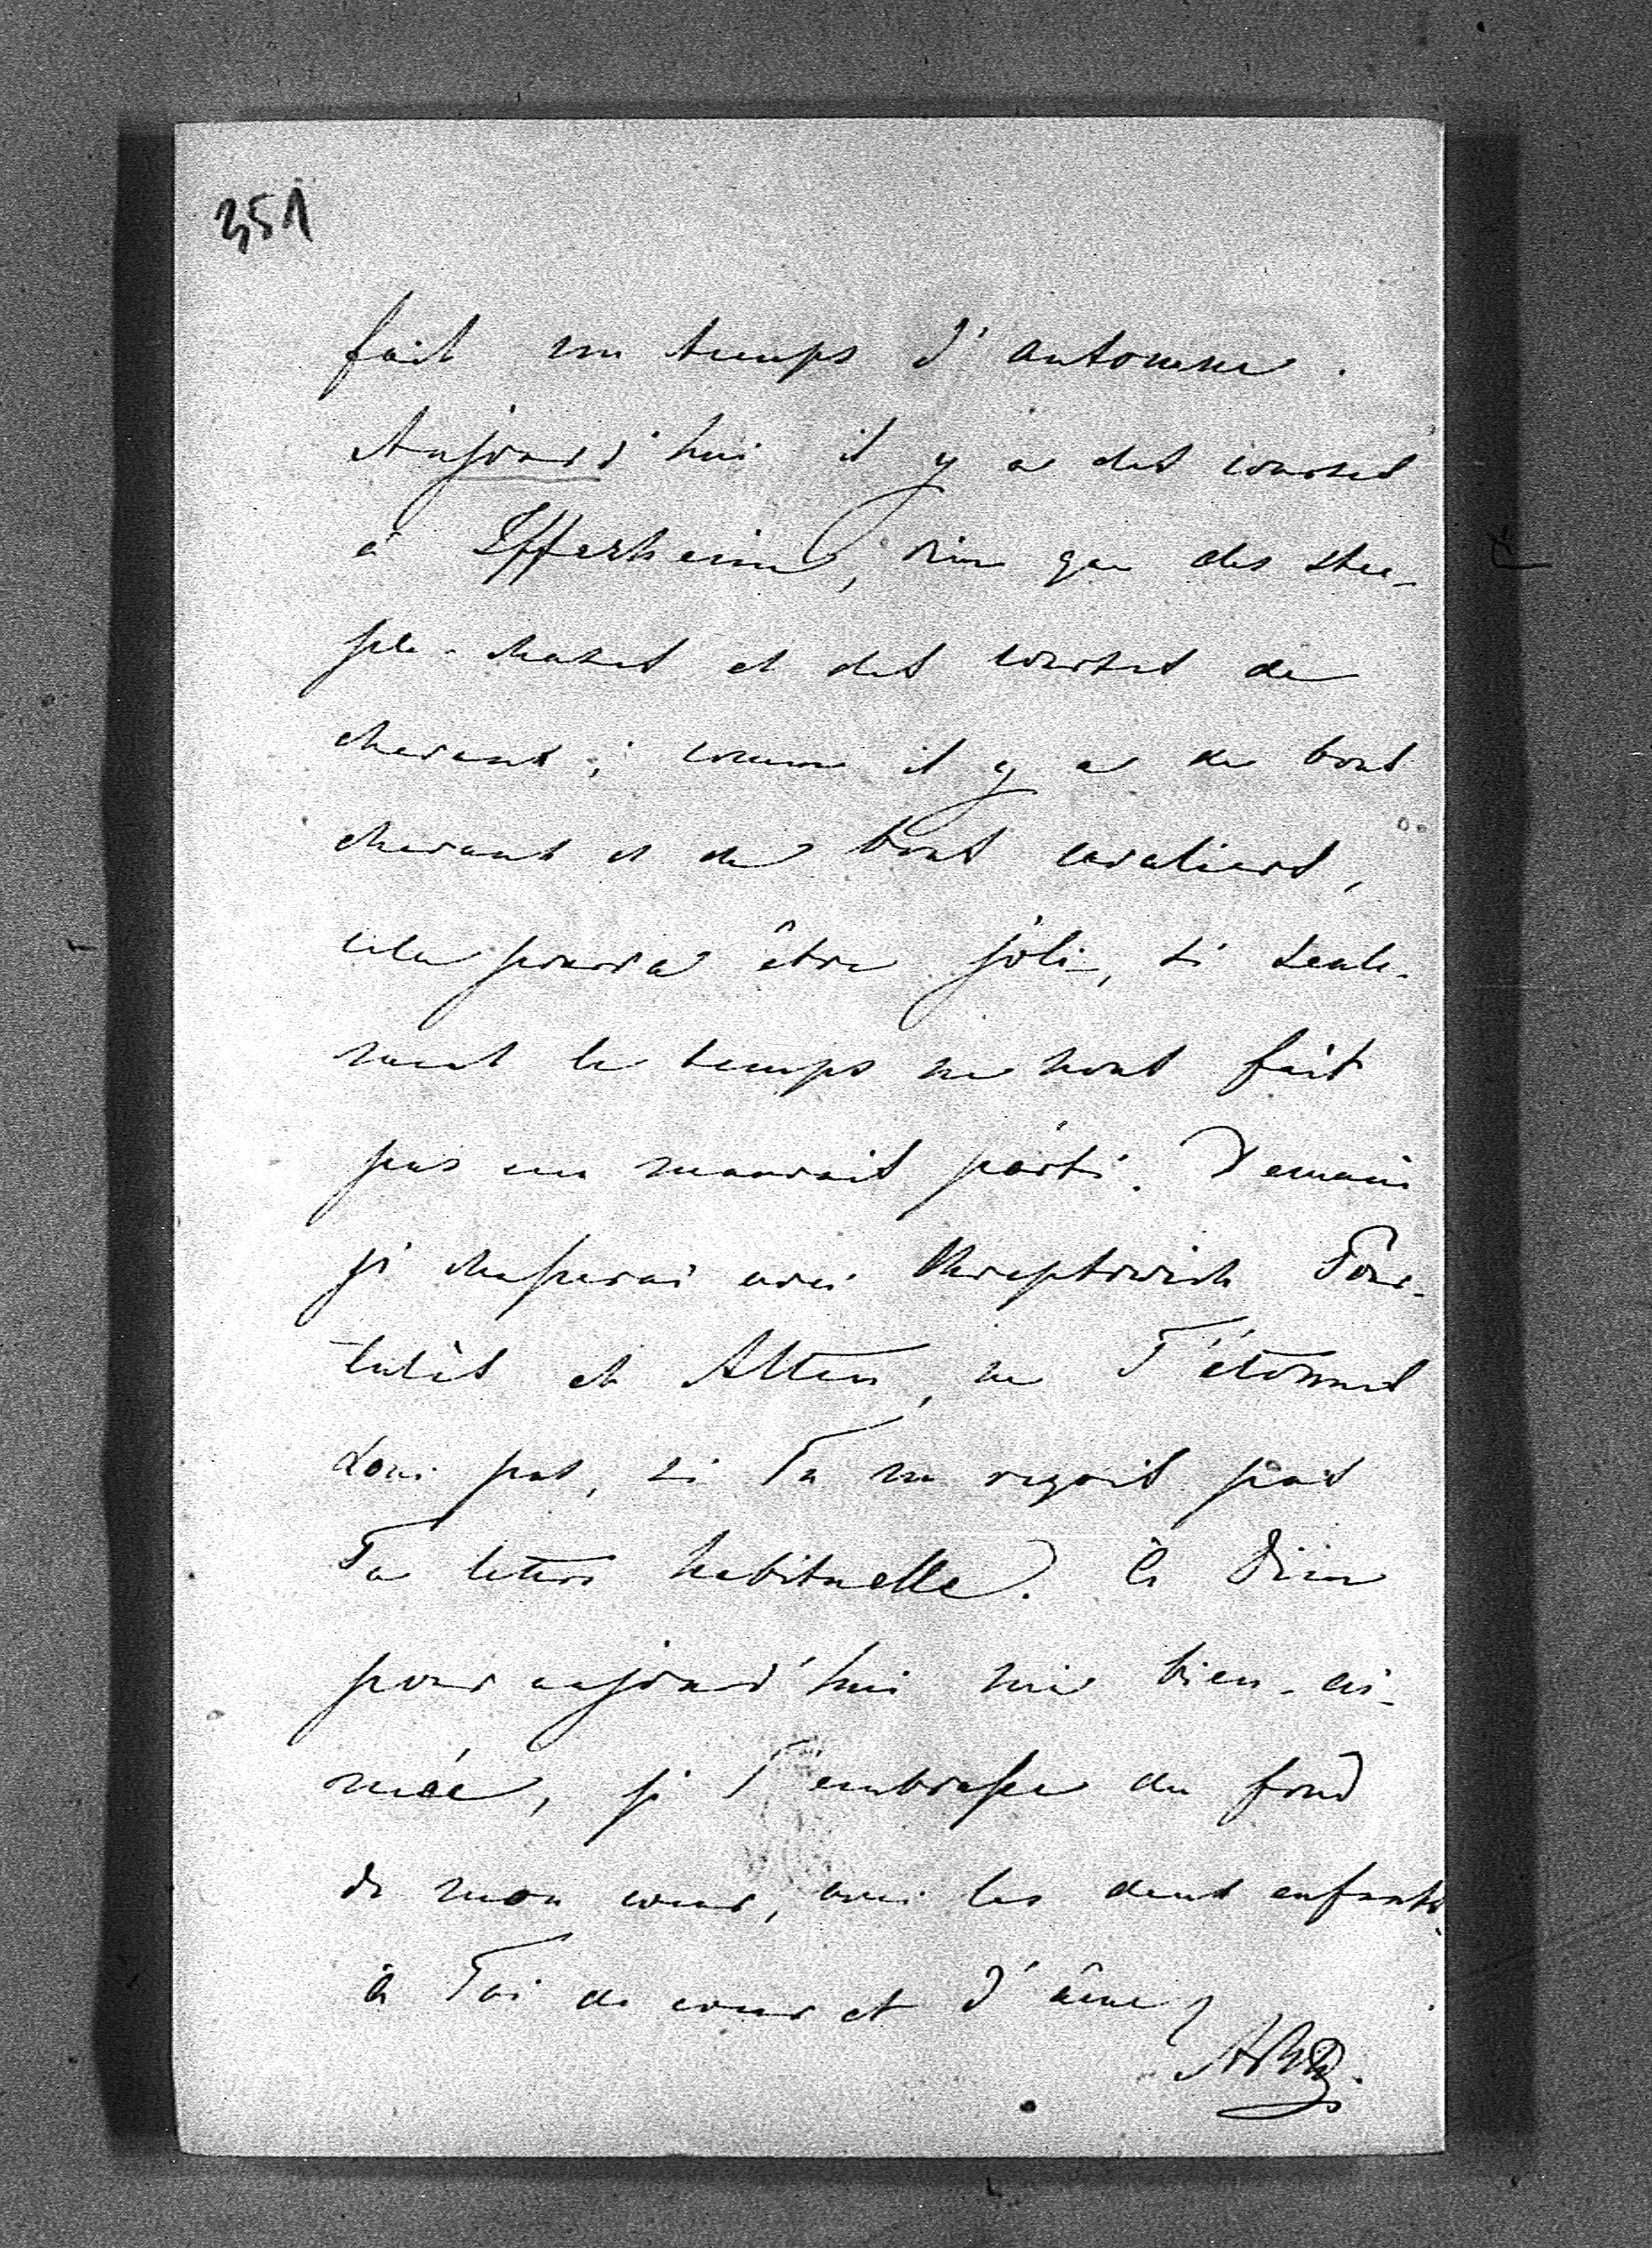 351
fait un temps d'automne.
Aujourd'hui il y a des courses
à Iffezheim, rien que des stee-
ple-chases et des courses de
chevaux; comme il y a de bons
chevaux et de bons cavaliers,
cela pourra être joli, si seule-
ment le temps ne nous fait
pas un mauvais parti. Demain
je chasserai avec Pour-
talès et Alten, ne T'étonnes
donc pas, si Tu ne reçois pas
Ta lettre habituelle. à Dieu
pour aujourd'hui mie bien-ai-
mée, je T'embrasse du fond
de mon cœur, avec les deux enfants.
à Toi de cœur et d'âme